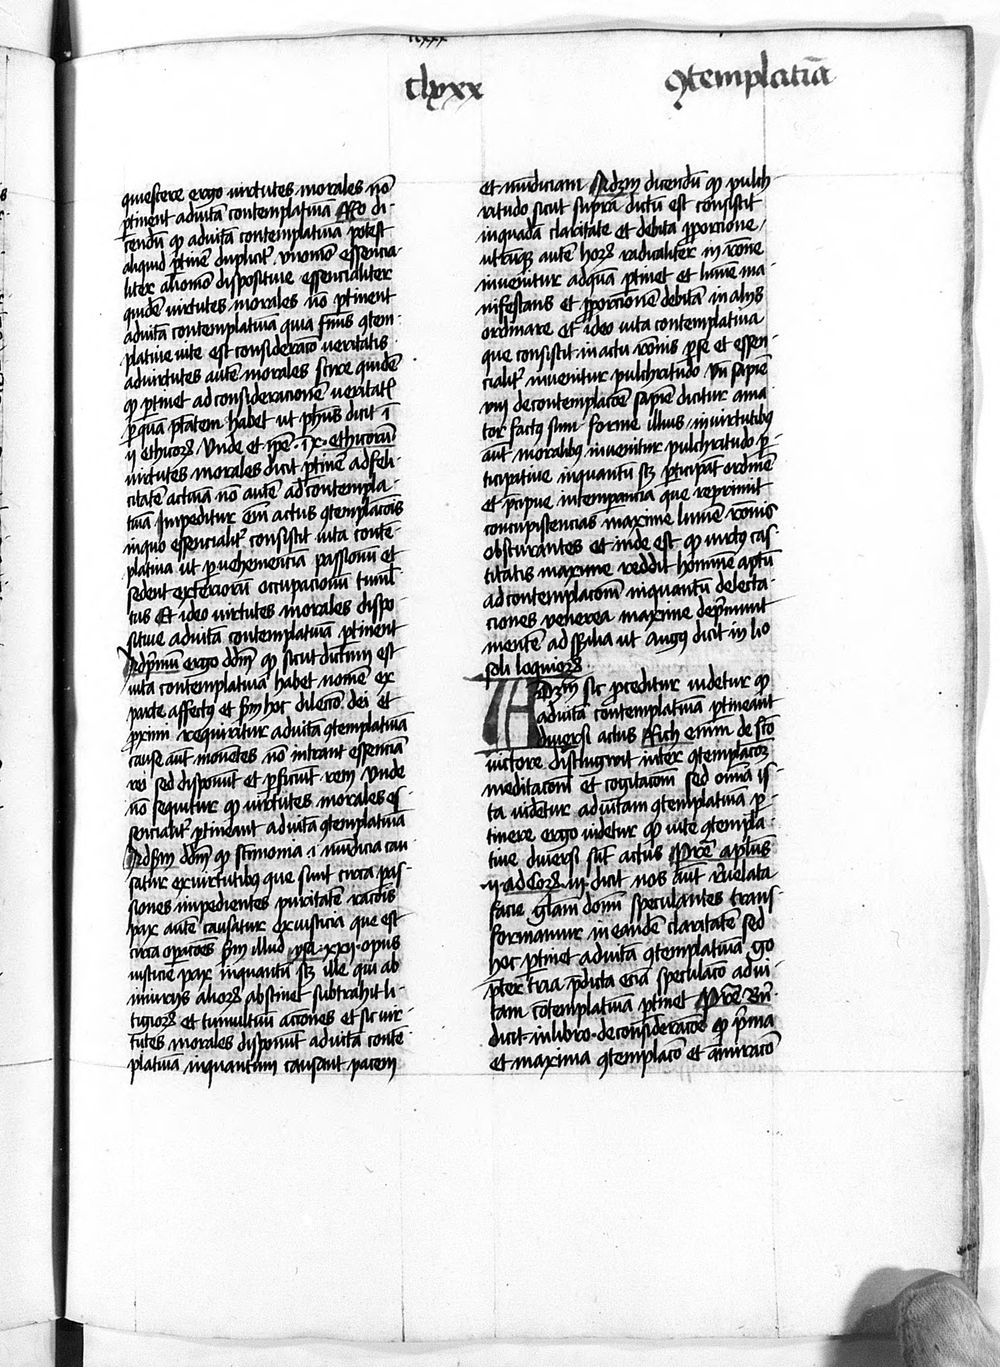 clxxx
ꝯtemplatiua̅
quiescere ergo uirtutes morales no̅
ꝑtinent aduita̅ contemplatiua̅ Rn̅o di-
cendu̅ ꝙ aduita̅ contemplatiua̅ potest
aliquid ꝑtine̅ duplicit̉. vnomo̅ essencia-
liter aliomo̅ dispositiue essencialiter
quide̅ uirtutes morales no̅ ꝑtinent
aduita̅ contemplatiua̅ quia finis ꝯtem-
platiue uite est consideraco̅ ueritatis
aduirtutes aute̅ morales scire quide̅
ꝙ ꝑtinet ad consideracione̅ ueritat̉
habet ut ph̅us dicit i̅
ij ethicoꝝ. Unde et ip̅e .ix. ethicoru̅
uirtutes morales dicit ꝑtine̅ adfeli-
citate̅ actiua̅ no̅ aute̅ ad contempla-
tiua̅ Impeditur eni̅ actus ꝯtemplaco̅is
inquo essencialit̉ consistit uita conte̅-
platiua ut ꝑ uehemencia̅ passionu̅ et
sedent exterioru̅ occupacionu̅ tumul-
tus Et ideo uirtutes morales dispo-
sitiue aduita̅ contemplatiua̅ ꝑtinent
Adp̅mu̅ ergo dd̅m ꝙ sicut dictum est
uita contemplatiua habet nomen ex
parte affectus et s̅m hoc dilecco̅ dei et
ꝓximi requiritur aduita̅ ꝯtemplatiua̅
cause aut̅ mouentes no̅ intrant essencia̅
rei sed disponu̅t et ꝑficiu̅t rem Unde
no̅ sequitur ꝙ uirtutes morales es-
sencialit̉ ꝑtineant aduita̅ ꝯtemplatiua̅
Ads̅m dd̅m ꝙ sc̅imonia .i. mu̅dicia cau-
satur exuirtutibus que sunt circa pas-
siones impedientes puritate̅ raco̅is
pax aute̅ causatur exiusticia que est
circa operaco̅es s̅m illud ysa. xxxii. opus
iusticie pax inquantu̅ sꝫ ille qui ab
iniurijs alioꝝ abstinet subtrahit li-
tigioꝝ et tumultuu̅ acciones et sic uir-
tutes morales disponu̅t aduita̅ conte̅-
platiua̅ inquantum causant pacem
et mu̅diciam Adt̅m dicendu̅ ꝙ pulch-
ritudo sicut supra̅ dictu̅ est consistit
inquada̅ claritate et debita ꝓporcione
utru̅qꝫ aute̅ hoꝝ radicaliter in ro̅ne
inuenitur adqua̅ ꝑtinet et lume̅ ma-
nifestans et ꝓporcione̅ debita̅ in alijs
ordinare Et ideo uita contemplatiua
que consistit inactu ro̅nis ꝑse et essen-
cialit̉ inuenitur pulchritudo Vn̅ sapie̅
viij decontemplaco̅e sapie̅ dicitur ama-
tor fact9 sum forme illius inuirtutibus
aut̅ moralibus inuenitur pulchritudo ꝑ-
ticipatiue inquantu̅ sꝫ ꝑticipa̅t ordine̅
et p̅cipue intemperancia que reprimit
concupiscencias maxime lume̅ ro̅nis
obscurantes et inde est ꝙ uirt9 cas-
titatis maxime reddit homine̅ aptu̅
adcontemplaco̅m inquantu̅ delecta-
ciones veneree maxime dep̅munt
mente̅ ad se̅sibilia ut Aug9 dicit in lio
soliloquioꝝ.
Adt̅m sic ꝓceditur uidetur ꝙ
aduita̅ contemplatiua̅ ꝑtineant
diuersi actus Rich enim de sc̅o
uictore distinguit inter ꝯtemplaco̅m
meditaco̅m et cogitaco̅m sed om̅ia is-
ta uidentur aduitam ꝯtemplatiua̅ ꝑ-
tinere ergo uidetur ꝙ uite ꝯtempla-
tiue diuersi su̅t actus Pret̅e apl̅us
.ij. ad Coꝝ. iij. dicit nos aut̅ reuelata
facie gl̅am domi̅ speculantes trans-
formamur in eande̅ claritatem sed
hoc ꝑtinet aduita̅ ꝯtemplatiua̅ go
p̅ter tria p̅dicta ecia̅ speculaco̅ adui-
tam co̅templatiua̅ ꝑtinet Pret̅e Bn̅.
dicit inlibro deconsideraco̅e ꝙ p̅ma
et maxima ꝯtemplaco̅ est amiraco̅